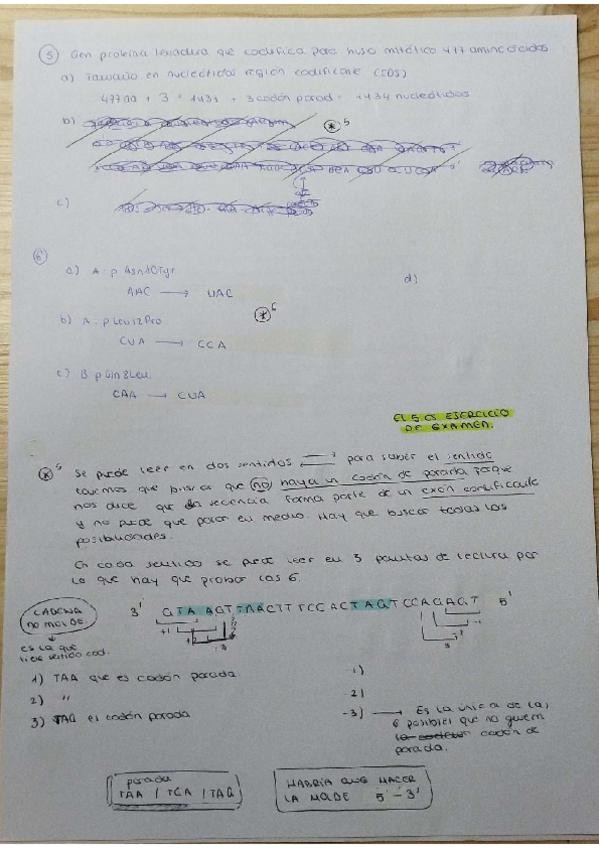 5 Gen proteína levadura que codifica para huso mitótico 477 aminoácidos
a) Tamaño en nucleótidos región codificante (CDS)
477 aa + 3 = 1431 + 3 codón parad = 1434 nucleótidos
b) * 5
c)
6
a) A. p Asn10Tyr d)
AAC → UAC
b) A. pLeu12Pro * 6
CUA → CCA
c) B pGln8Leu
CAA → CUA
El 5 es EJERCICIO
DE EXAMEN.
* 5 Se puede leer en dos sentidos para saber el sentido
tenemos que buscar que no haya un codón de parada porque
nos dice que la secuencia forma parte de un exón codificante
y no puede que parar en medio. Hay que buscar todas las
posibilidades.
En cada sentido se puede leer en 3 pautas de lectura por
lo que hay que probar las 6.
CADENA
NO MOLDE
3' GTAAGTTAACTTTCCACTAGTCCAGAGT 5'
+1 +2 +3
es la que
tiene sentido cod.
1) TAA que es codón parada -1)
2) " -2)
3) TAG es codón parada -3) → Es la única de las
6 posibles que no generen
codón de
parada.
parada
TAA / TGA / TAG
HABRÍA QUE HACER
LA MOLDE 5' - 3'